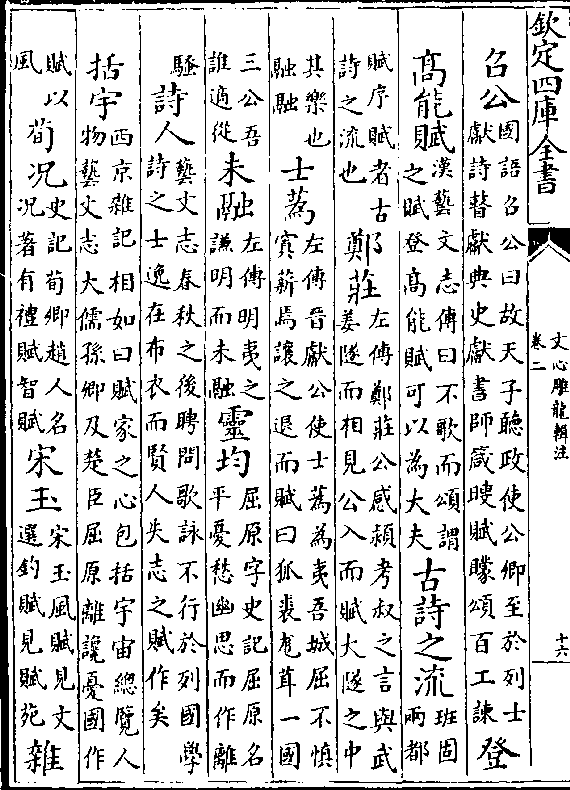 欽定四庫全書
文心雕龍輯注
卷二
十六
召公國語召公曰故天子聽政使公卿至於列士獻詩瞽獻典史獻書師箴瞍賦矇頌百工諫登
高能賦漢藝文志傳曰不歌而頌謂之賦登高能賦可以為大夫古詩之流班固兩都
賦序賦者古詩之流也鄭莊左傳鄭莊公感潁考叔之言與武姜隧而相見公入而賦大隧之中
其樂也融融士蒍左傳晉獻公使士蒍為夷吾城屈不慎寘薪焉讓之退而賦曰狐裘尨茸一國
三公吾誰適從未融左傳明夷之謙明而未融靈均屈原字史記屈原名平憂愁幽思而作離
騷詩人藝文志春秋之後聘問歌詠不行於列國學詩之士逸在布衣而賢人失志之賦作矣
括宇西京雜記相如曰賦家之心包括宇宙總覽人物藝文志大儒孫卿及楚臣屈原離讒憂國作
賦以風荀况史記荀卿趙人名况著有禮賦智賦宋玉宋玉風賦見文選釣賦見賦苑雜